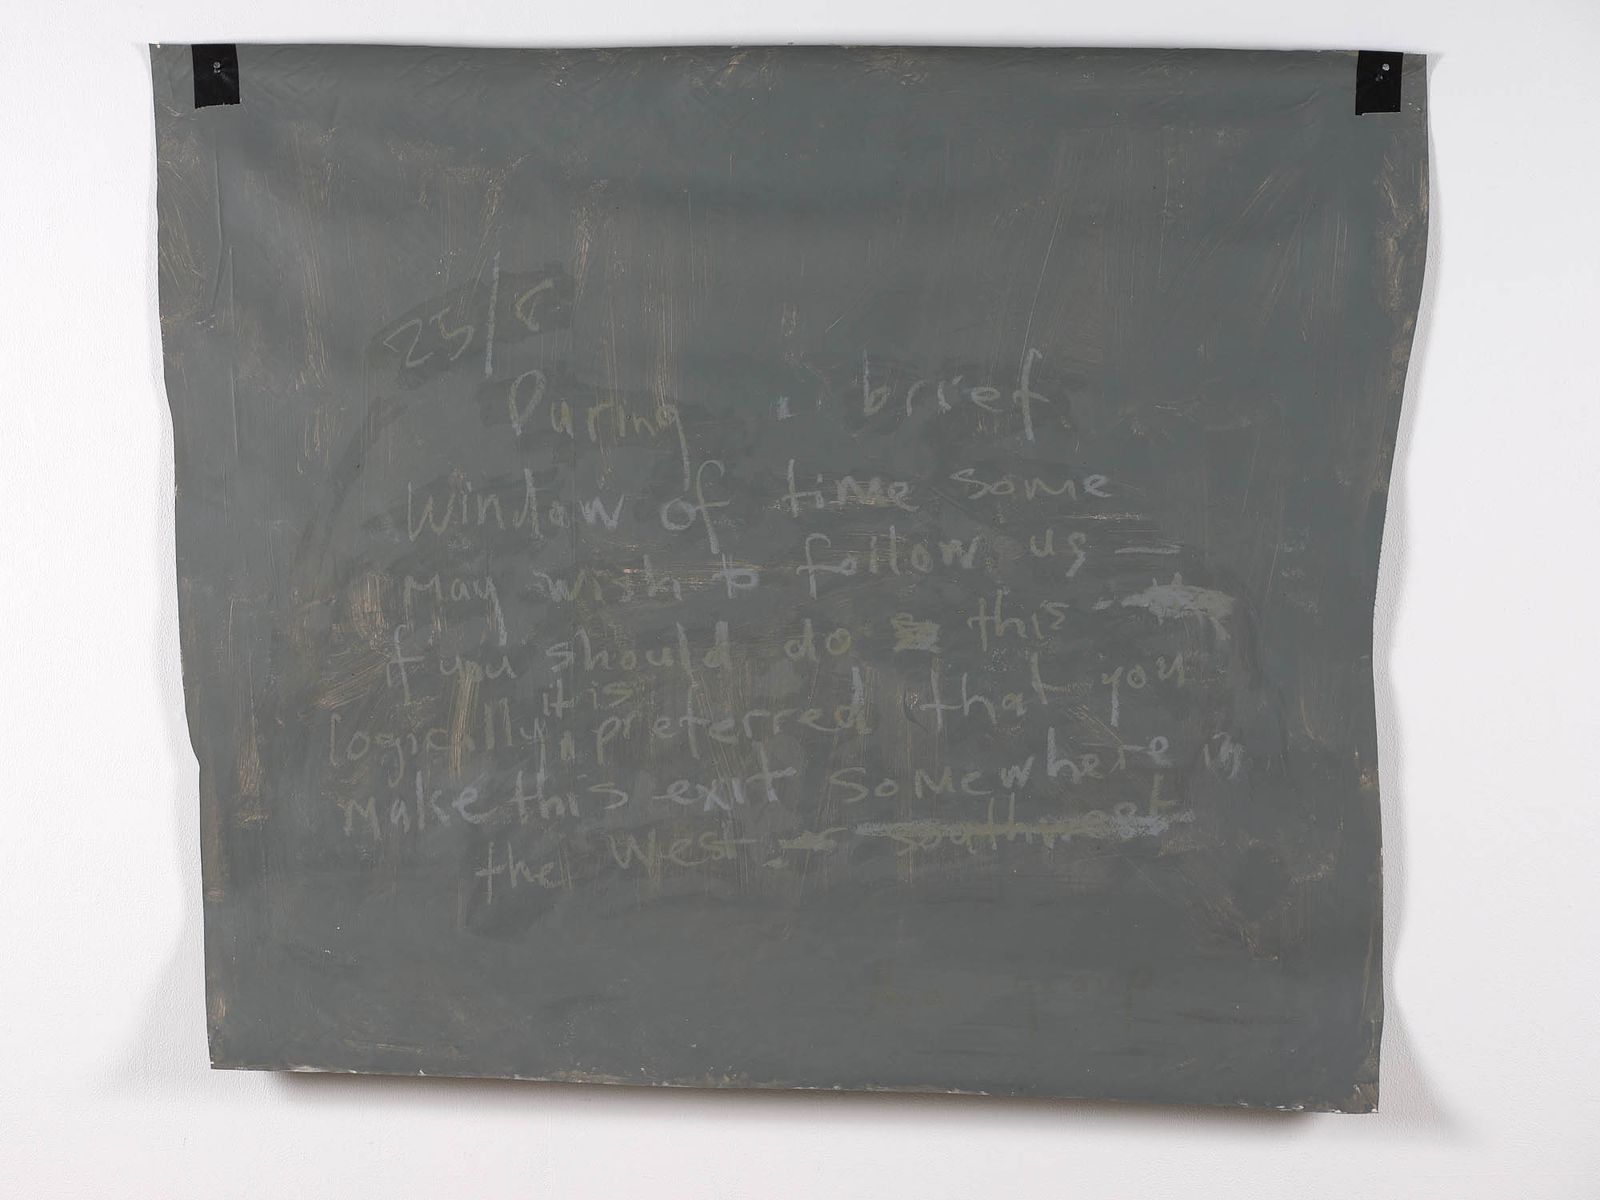 25/8
During a brief
window of time some
may wish to follow us —
if you should do this
it is
logically preferred that you
make this exit somewhere in
the west. or southwest